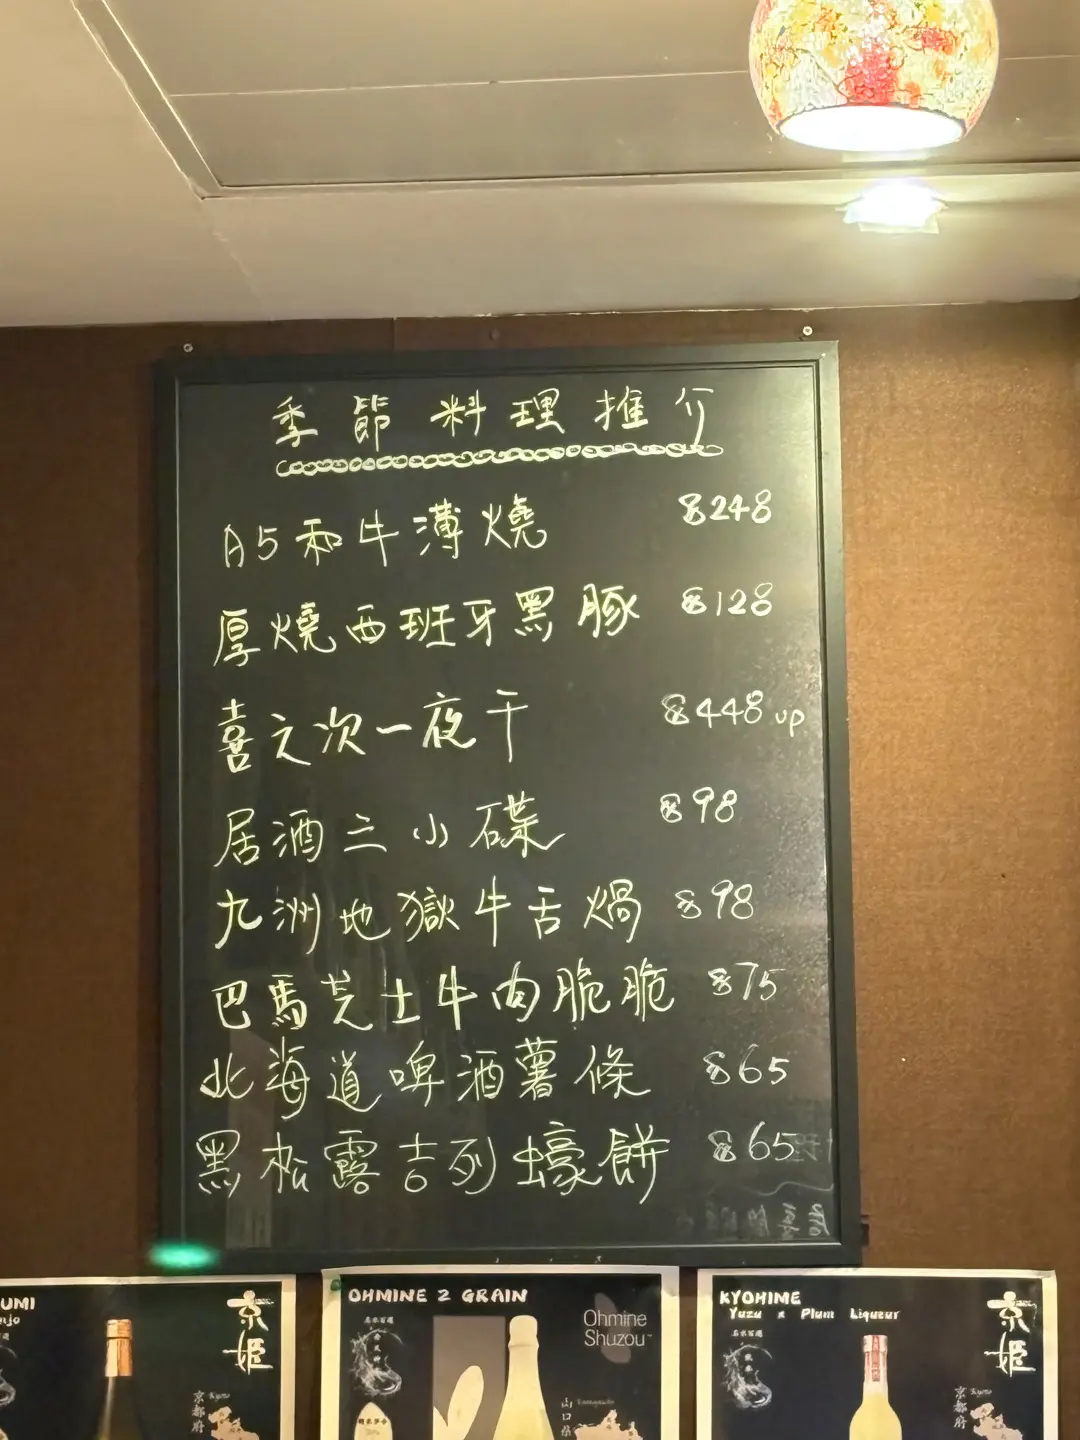 季節料理推介
A5和牛薄燒 $248
厚燒西班牙黑豚 $128
喜之次一夜干 $448 up
居酒三小碟 $98
九洲地獄牛舌煱 $98
巴馬芝士牛肉脆脆 $75
北海道啤酒薯條 $65
黑松露吉列蠔餅 $65
UMI
京姫
京都府
Kyoto
OHMINE 2 GRAIN
Ohmine
Shuzou
山口県
KYOHIME
Yuzu x Plum Liqueur
京姫
京都府
Kyoto